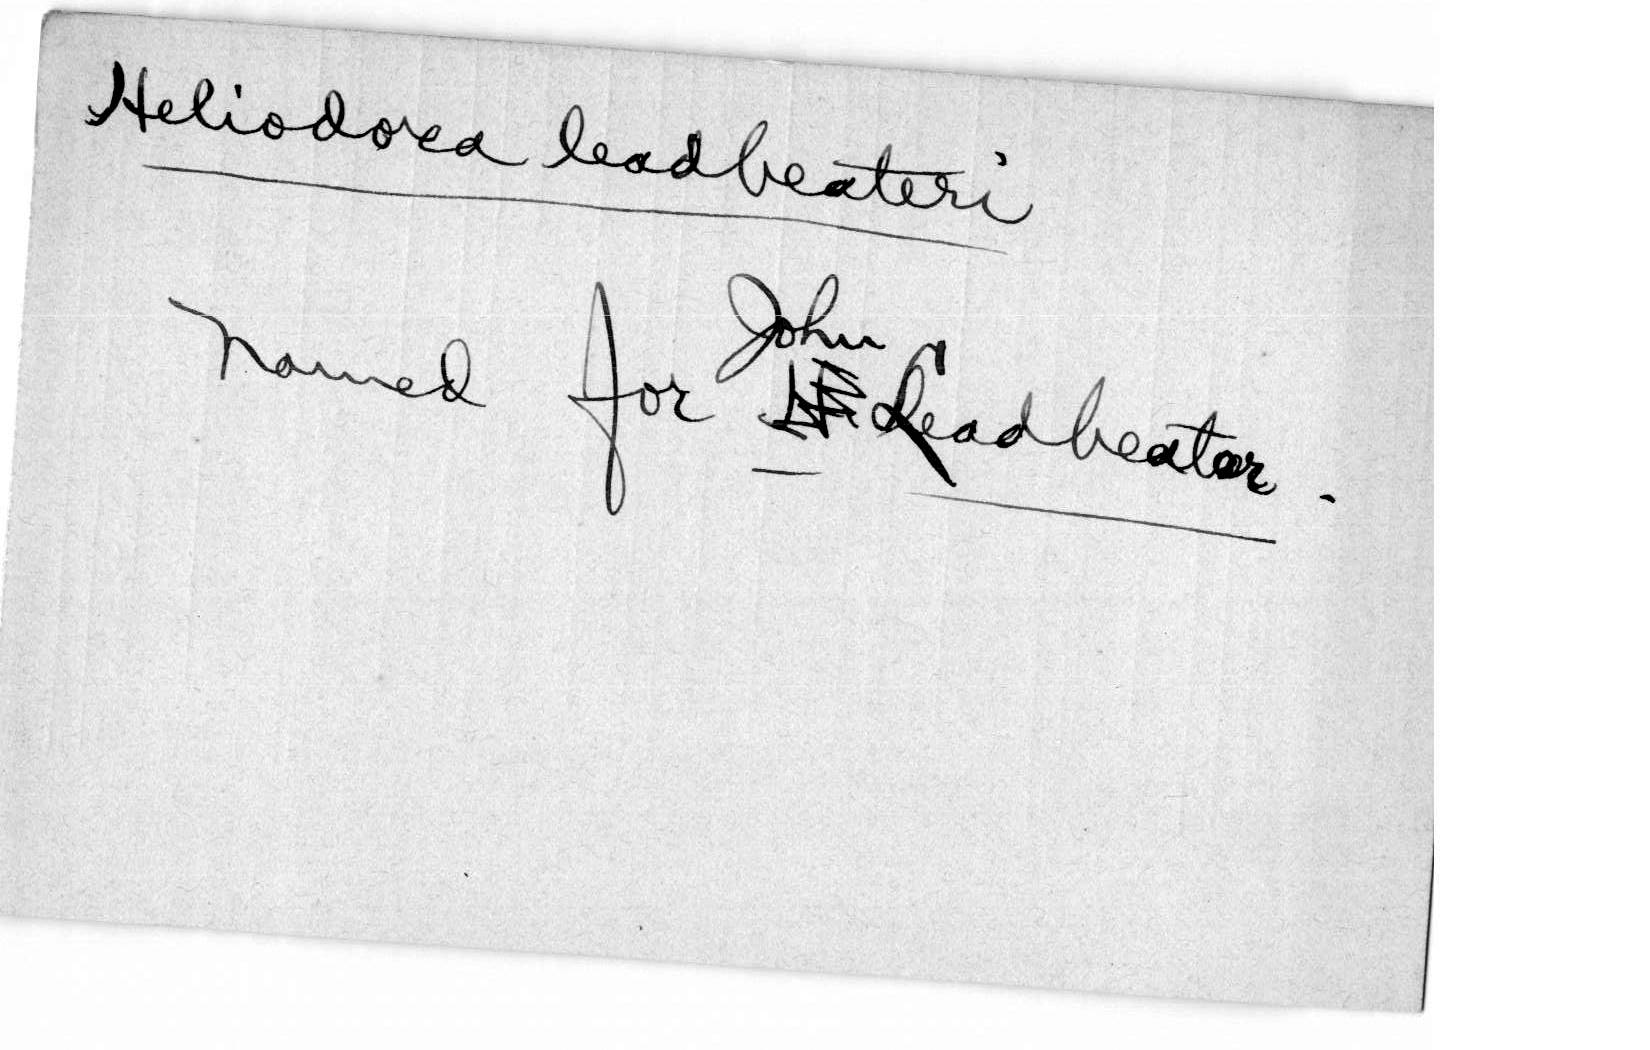 Heliodoxa leadbeateri
Named for John Leadbeater.